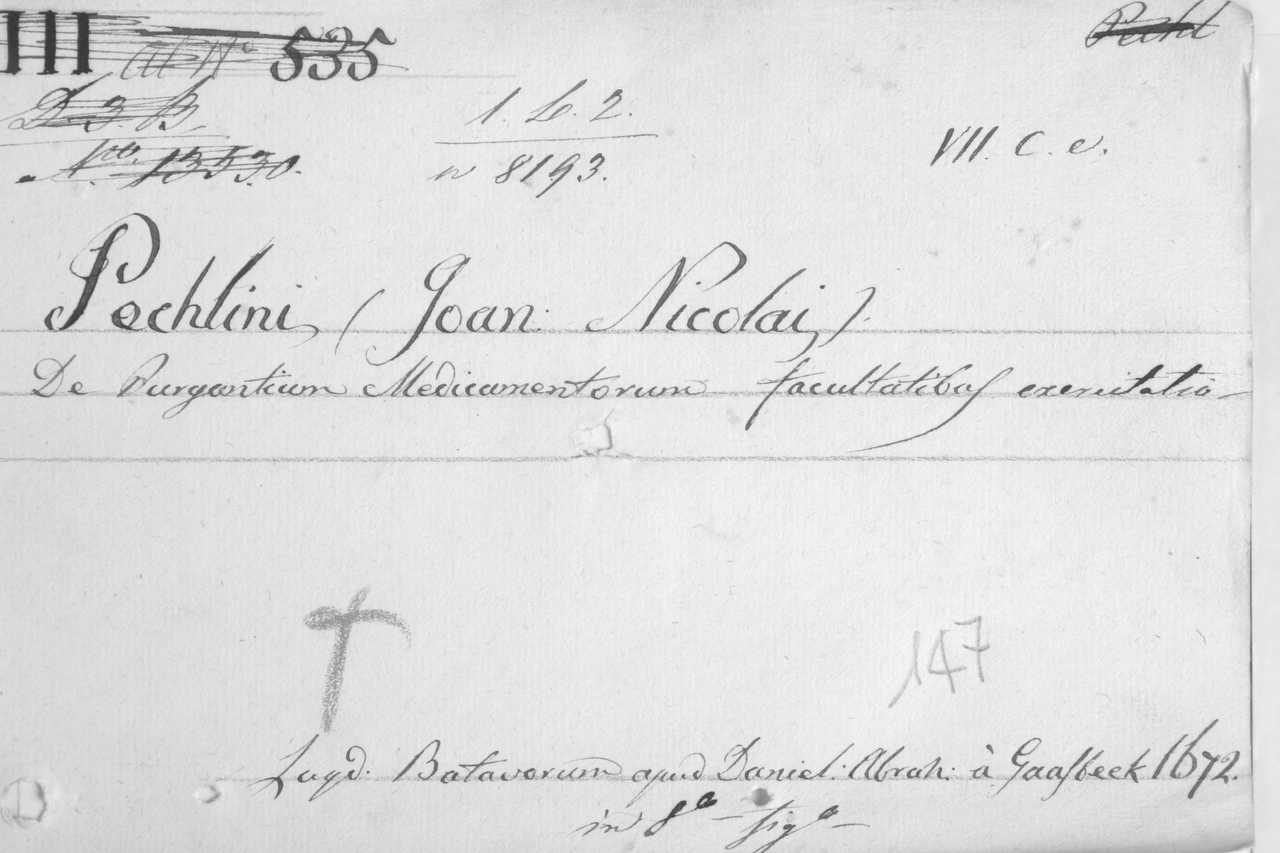 III ad No 535
Pechl
D. 3. B.
1. L. 2.
VII. C. e.
Nro. 13530.
n 8193.
Pechlini, (Joan: Nicolai,)
De Purgantium Medicamentorum facultatibus exercitatio
147
Lugd: Batavorum apud Daniel: Abrah: à Gaasbeek 1672.
in 8o